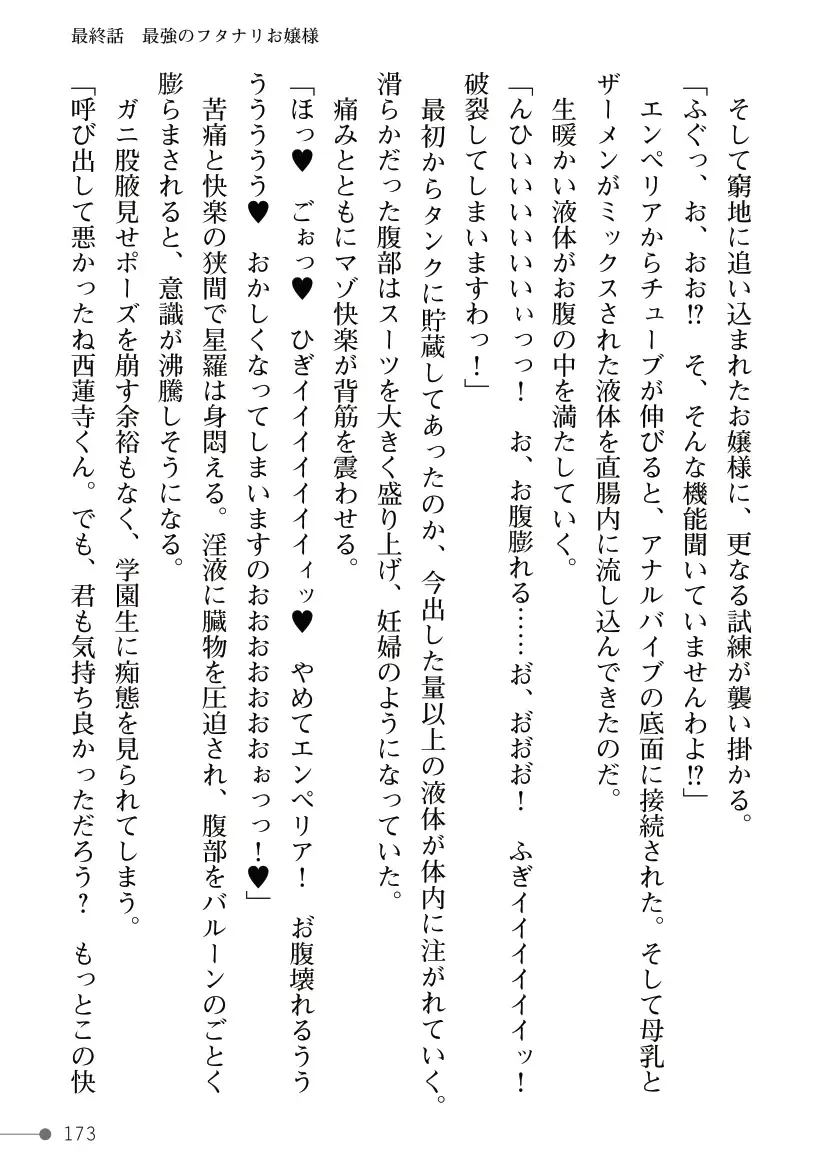 最終話　最強のフタナリお嬢様
そして窮地に追い込まれたお嬢様に、更なる試練が襲い掛かる。
「ふぐっ、お、おお!?　そ、そんな機能聞いていませんわよ!?」
エンペリアからチューブが伸びると、アナルバイブの底面に接続された。そして母乳と
ザーメンがミックスされた液体を直腸内に流し込んできたのだ。
生暖かい液体がお腹の中を満たしていく。
「んひぃいいいいいいぃっっ！　お、お腹膨れる……お゛、お゛お゛お゛！　ふぎイイイイイイッ！
破裂してしまいますわっ！」
最初からタンクに貯蔵してあったのか、今出した量以上の液体が体内に注がれていく。
滑らかだった腹部はスーツを大きく盛り上げ、妊婦のようになっていた。
痛みとともにマゾ快楽が背筋を震わせる。
「ほっ♥　ごぉっ♥　ひぎイイイイイイイィッ♥　やめてエンペリア！　お゛腹壊れるうう
ううううう♥　おかしくなってしまいますのおおおおおおおぉっっ！♥」
苦痛と快楽の狭間で星羅は身悶える。淫液に臓物を圧迫され、腹部をバルーンのごとく
膨らまされると、意識が沸騰しそうになる。
ガニ股腋見せポーズを崩す余裕もなく、学園生に痴態を見られてしまう。
「呼び出して悪かったね西蓮寺くん。でも、君も気持ち良かっただろう？　もっとこの快
173